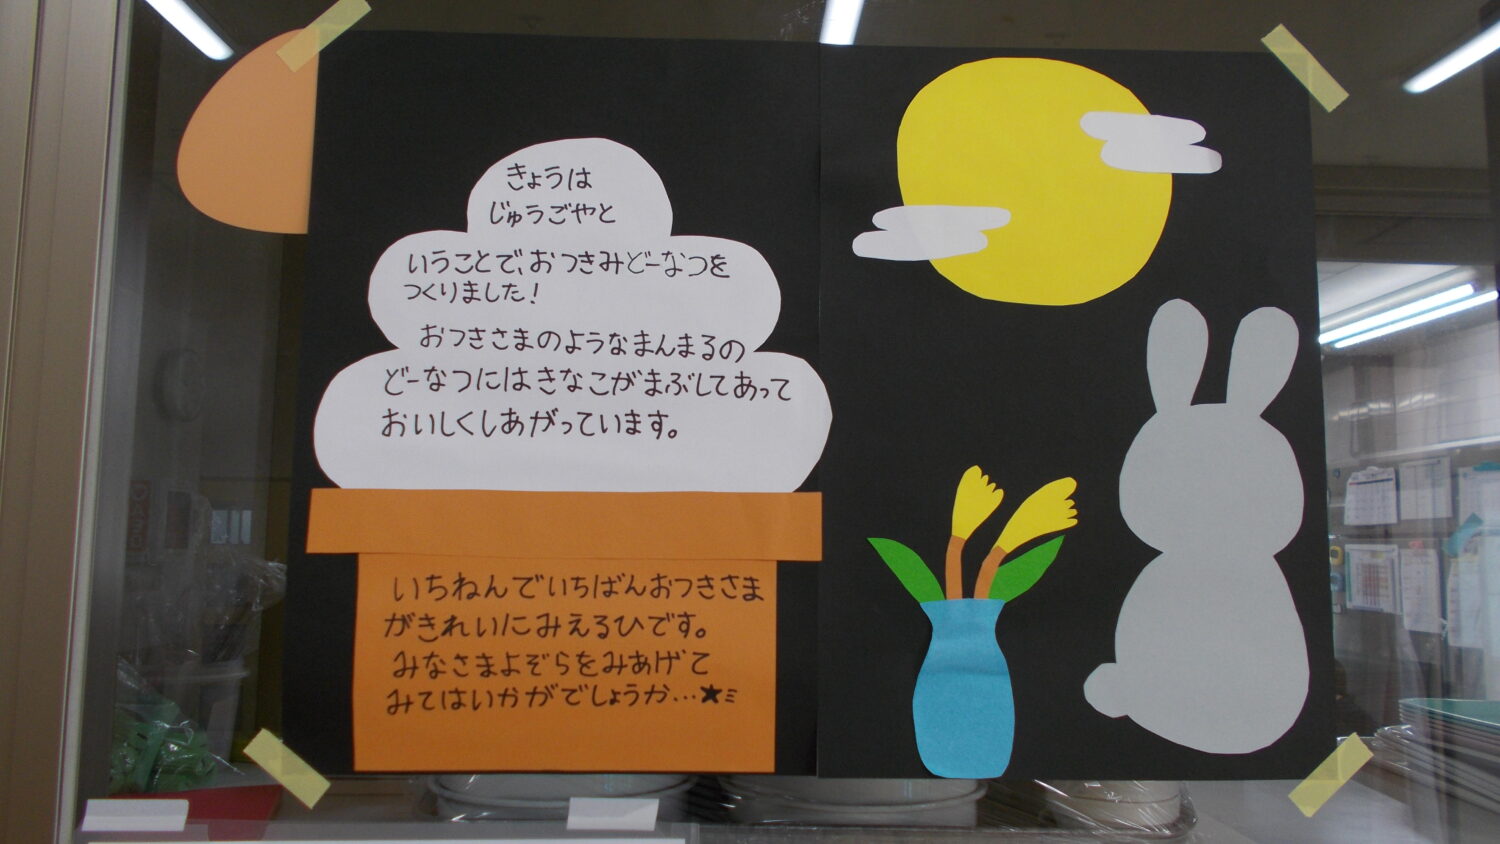 きょうは
じゅうごやと
いうことで、おつきみどーなつを
つくりました!
おつきさまのようなまんまるの
どーなつにはきなこがまぶしてあって
おいしくしあがっています。
いちねんでいちばんおつきさま
がきれいにみえるひです。
みなさまよぞらをみあげて
みてはいかがでしょうか…★ミ